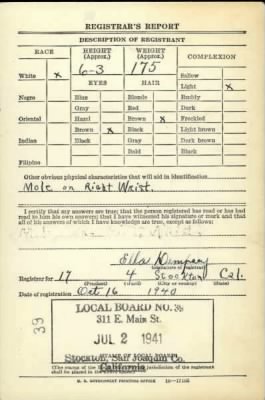 REGISTRAR'S REPORT
DESCRIPTION OF REGISTRANT
RACE HEIGHT (Approx.) WEIGHT (Approx.) COMPLEXION
White x 6-3 175 Sallow
EYES HAIR Light x
Negro Blue Blonde Ruddy
Gray Red Dark
Oriental Hazel Brown x Freckled
Brown x Black Light brown
Indian Black Gray Dark brown
Bald Black
Filipino
Other obvious physical characteristics that will aid in identification
Mole on Right Wrist.
I certify that my answers are true; that the person registered has read or has had
read to him his own answers; that I have witnessed his signature or mark and that
all of his answers of which I have knowledge are true, except as follows:
(Signature of registrar)
Registrar for 17 4 Stockton Cal.
(Precinct) (Ward) (City or county) (State)
Date of registration Oct 16 1940
LOCAL BOARD NO.
311 E. Main St.
JUL 2 1941
STAMP OF LOCAL BOARD
Stockton, San Joaquin Co.
California
(The stamp of the Local Board jurisdiction of the registrant
shall be placed in the above space.)
39
U. S. GOVERNMENT PRINTING OFFICE